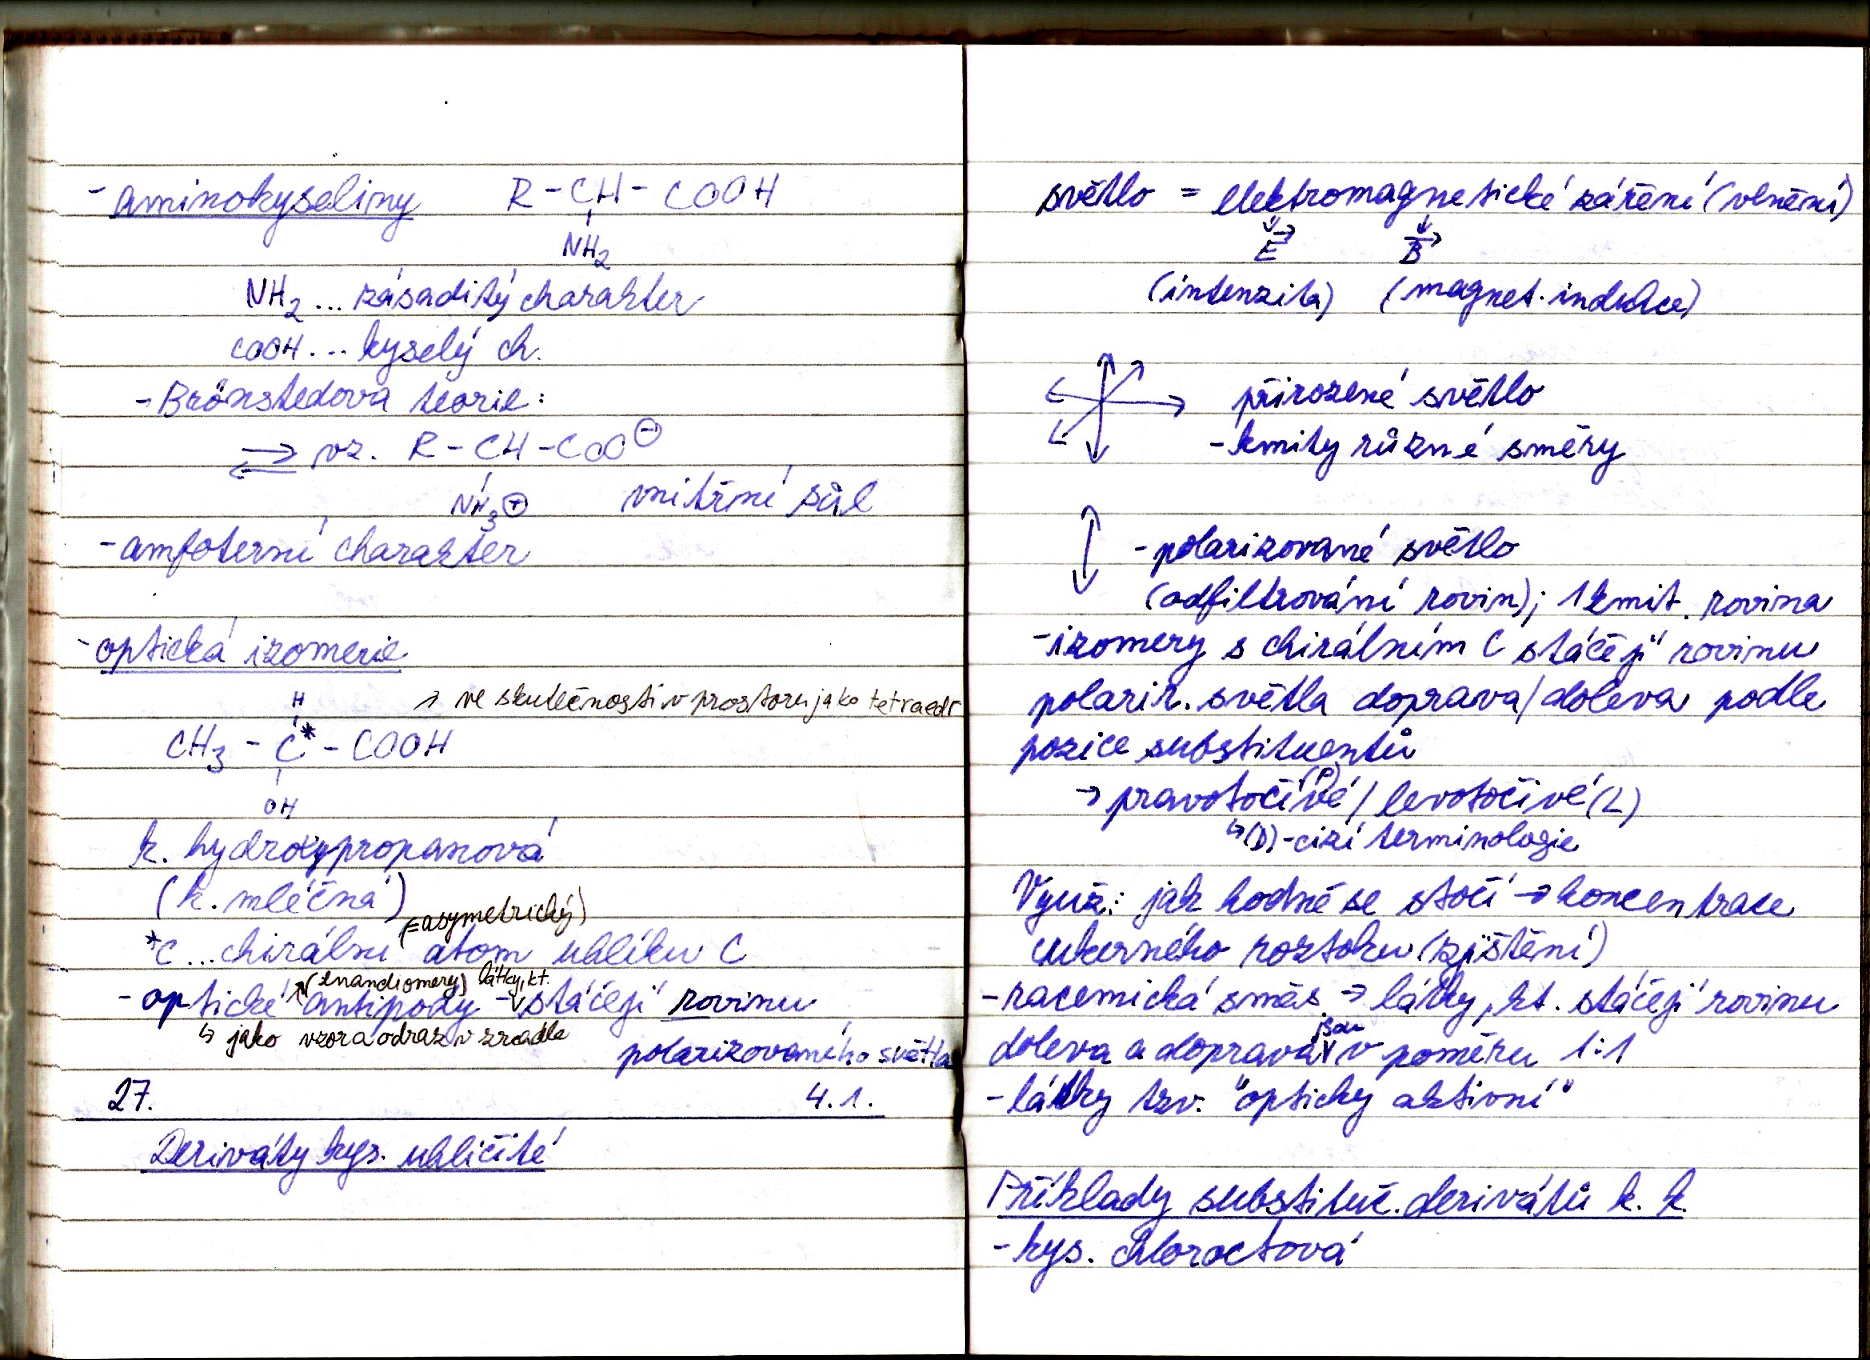 - aminokyseliny R - CH - COOH
NH2
NH2 ... zásaditý charakter
COOH ... kyselý ch.
- Brönstedova teorie:
⇌ vz. R - CH - COO⊖
NH3⊕ vnitřní sůl
- amfoterní charakter
- optická izomerie
H → ve skutečnosti v prostoru jako tetraedr
CH3 - C* - COOH
OH
k. hydroxypropanová
(k. mléčná)
(=asymetrický)
*C ... chirální atom uhlíku C
(enandiomery) látky, kt.
- optické antipody - stáčejí rovinu
↳ jako vzor a odraz v zrcadle
polarizovaného světla
27. 4.1.
Deriváty kys. uhličité
světlo = elektromagnetické záření (vlnění)
E B
(intenzita) (magnet. indukce)
přirozené světlo
- kmity různé směry
- polarizované světlo
(odfiltrování rovin); 1 kmit. rovina
- izomery s chirálním C stáčejí rovinu
polariz. světla doprava/doleva podle
pozice substituentů
(P)
→ pravotočivé / levotočivé (L)
↳ (D) - cizí terminologie
Využ.: jak hodně se stočí → koncentrace
cukerného roztoku (zjištění)
- racemická směs → látky, kt. stáčejí rovinu
jsou
doleva a doprava v poměru 1:1
- látky tzv. "opticky aktivní"
Příklady substituč. derivátů k. k.
- kys. chloroctová